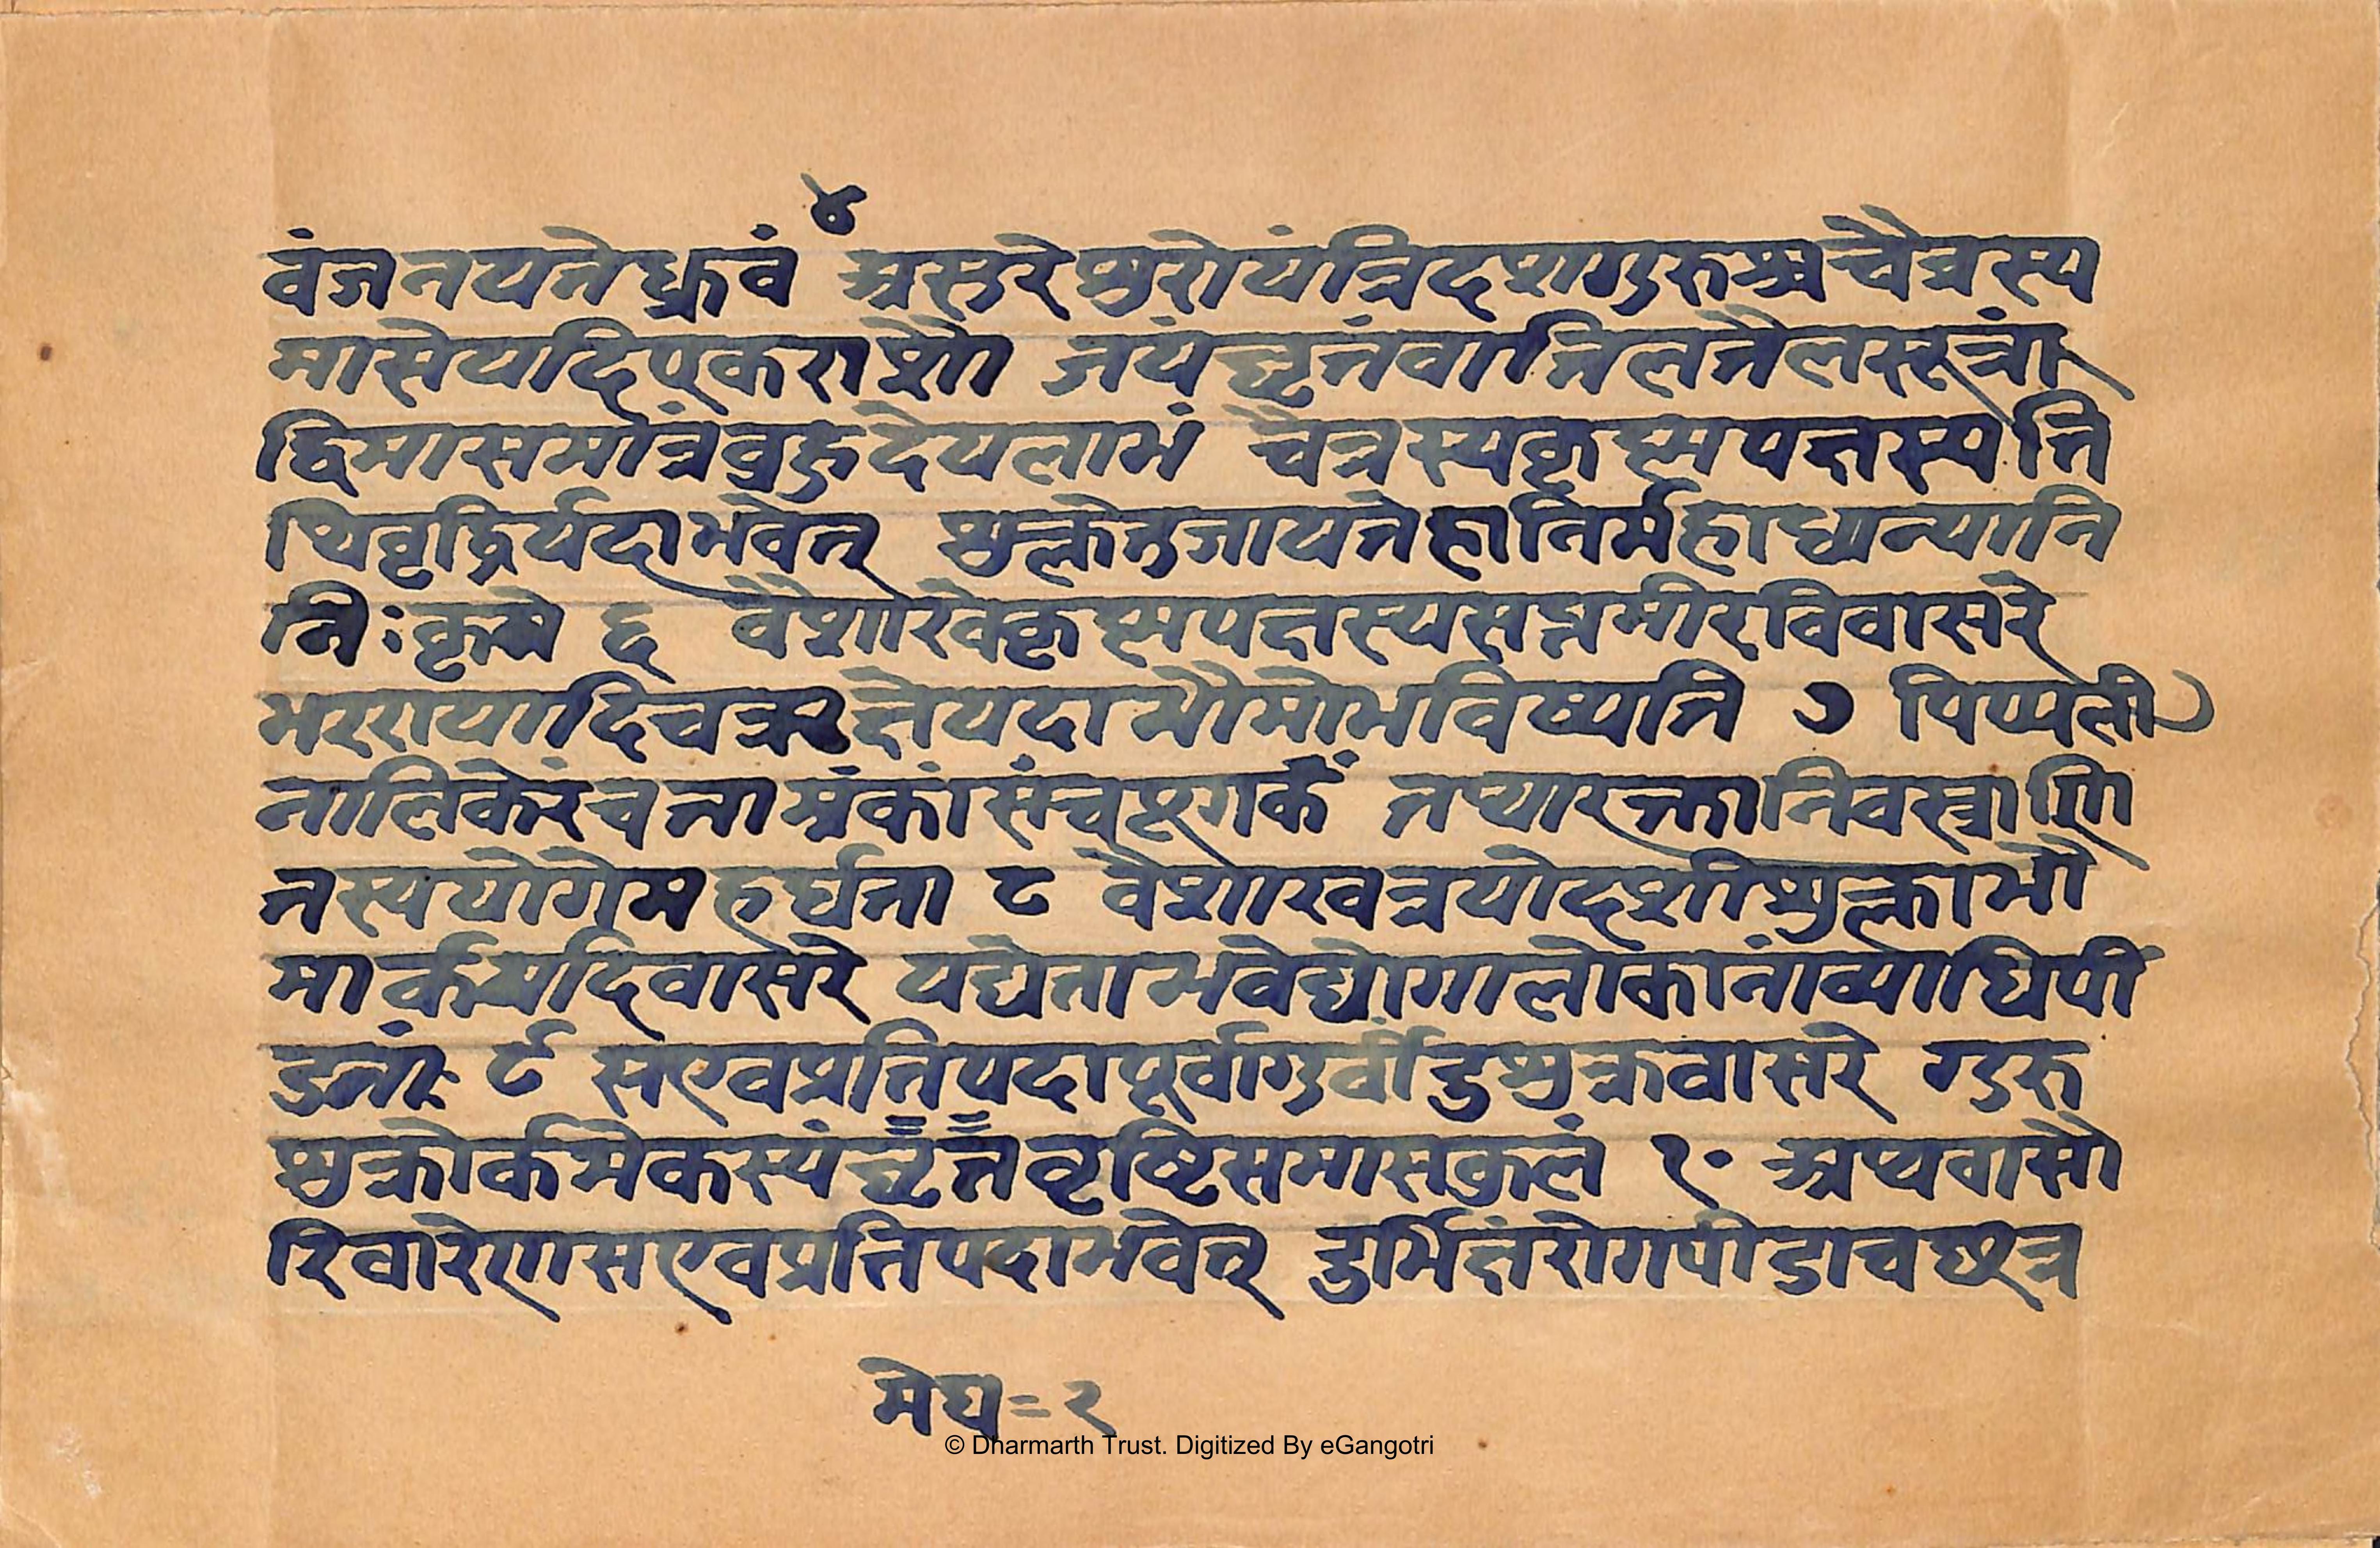 ४
वंजनयतेध्रुवं असुरेशुरोयंत्रिदशागुरुश्च चैत्रस्य
मासेयदिएकराशौ जयंघृतंवातिलतैलसूत्रां
द्विमासमात्रंवुहुदेयलाभं चैत्रस्यकृष्मपक्षस्यति
थिवृद्धिर्यदाभवेत् शुक्लेतुजायतेहानिर्महाधान्यानि
निःकृमे ६ वैशारवेकृष्मपक्षस्यसप्तमीरविवासरे
भररायादिचत्रक्षेयदाभौमोभविष्यति ७ पिप्पली
नालिकेरंचताम्रंकांसंचष्टगर्कं तथ्यारक्तानिवस्त्राणि
तस्ययोगेमहर्घता ८ वैशाखत्रयोदशीशुक्लाभौ
मार्कयदिवासरे यद्येताभवेद्योगालोकानांव्याधिपीं
डतां ९ सएवप्रतिपदापूर्वागुर्वीडुशुक्रवासरे गुरु
शुक्रोर्कमेकस्यंघृतंवृष्टिसमासकुलं १० अथवासौ
रिवारेणसएवप्रतिपदाभवेत् दुर्भिक्षंरोगपीडाचछत्र
मेघ=२
© Dharmarth Trust. Digitized By eGangotri